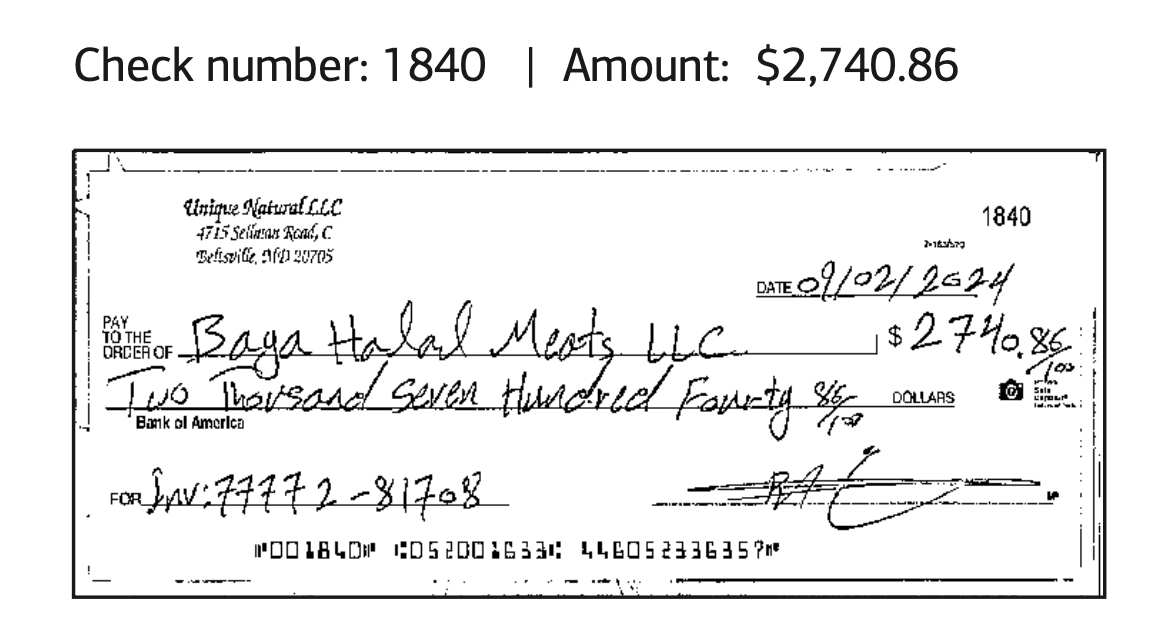 Check number: 1840 | Amount: $2,740.86
Unique Natural LLC
4715 Sellman Road, C
Beltsville, MD 20705
1840
DATE 09/02/2024
PAY TO THE ORDER OF Baga Halal Meats LLC $ 2740.86/100
Two Thousand Seven Hundred Fourty 86/100 DOLLARS
Bank of America
FOR Inv: 77772-81708
⑈001840⑈ ⑆052001633⑆ 446052336357⑈